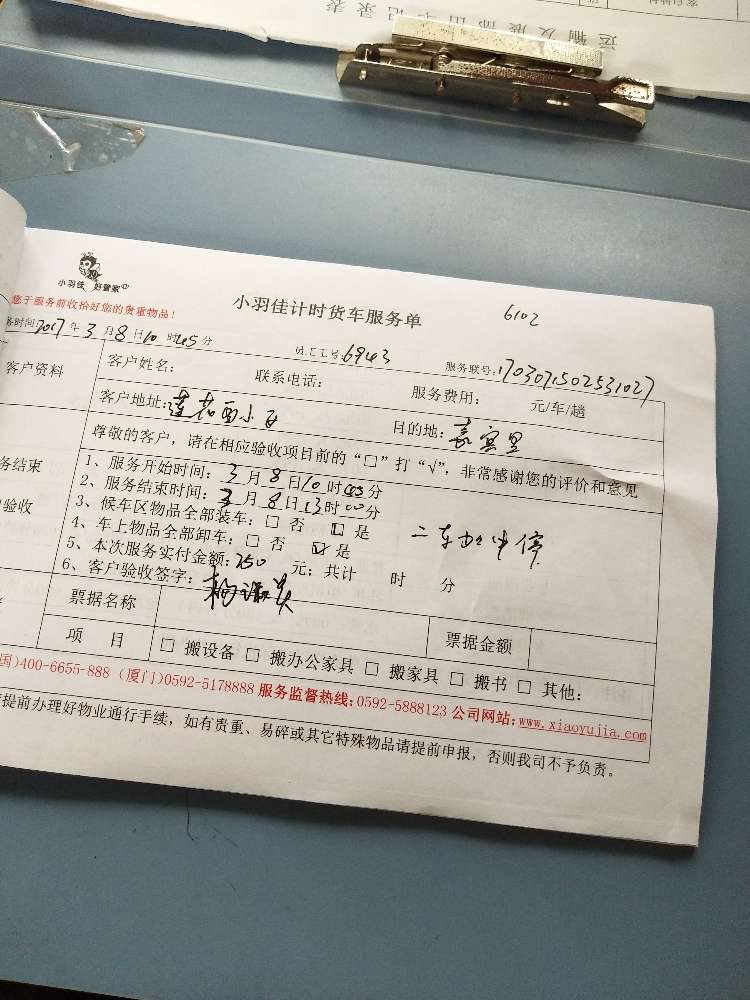 运输及废部出车记录表
小羽佳 好管家
小羽佳计时货车服务单
6102
您于服务前收拾好您的贵重物品!
务时间:2017年3月8日10时45分
员工工号:6943
服务联号:1703071502531027
客户资料
客户姓名: 联系电话: 服务费用: 元/车/趟
客户地址:莲花西小区 目的地:嘉宾里
尊敬的客户,请在相应验收项目前的“□”打“√”,非常感谢您的评价和意见
务结束
验收
1、服务开始时间:3月8日10时45分
2、服务结束时间:3月8日13时00分
3、候车区物品全部装车:□ 否 □ 是
4、车上物品全部卸车:□ 否 ☑ 是
5、本次服务实付金额:750元;共计 时 分
6、客户验收签字:
票据名称 票据金额
项 目 □ 搬设备 □ 搬办公家具 □ 搬家具 □ 搬书 □ 其他:
国)400-6655-888 (厦门)0592-5178888 服务监督热线:0592-5888123 公司网站:www.xiaoyujia.com
提前办理好物业通行手续,如有贵重、易碎或其它特殊物品请提前申报,否则我司不予负责。